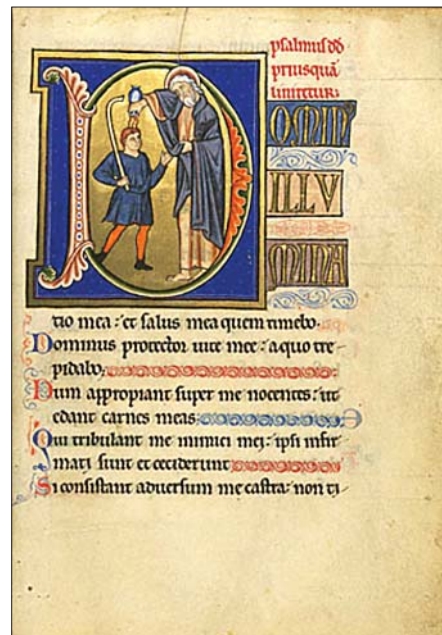 psalmus dd
priusquā
liniretur:
D OMIN
ILLV
MINA
tio mea: et salus mea quem timebo.
Dominus protector uite mee: a quo tre
pidabo;
Dum appropiant super me nocentes: ut
edant carnes meas
Qui tribulant me inimici mei: ipsi infir
mati sunt et ceciderunt
Si consistant aduersum me castra: non ti-